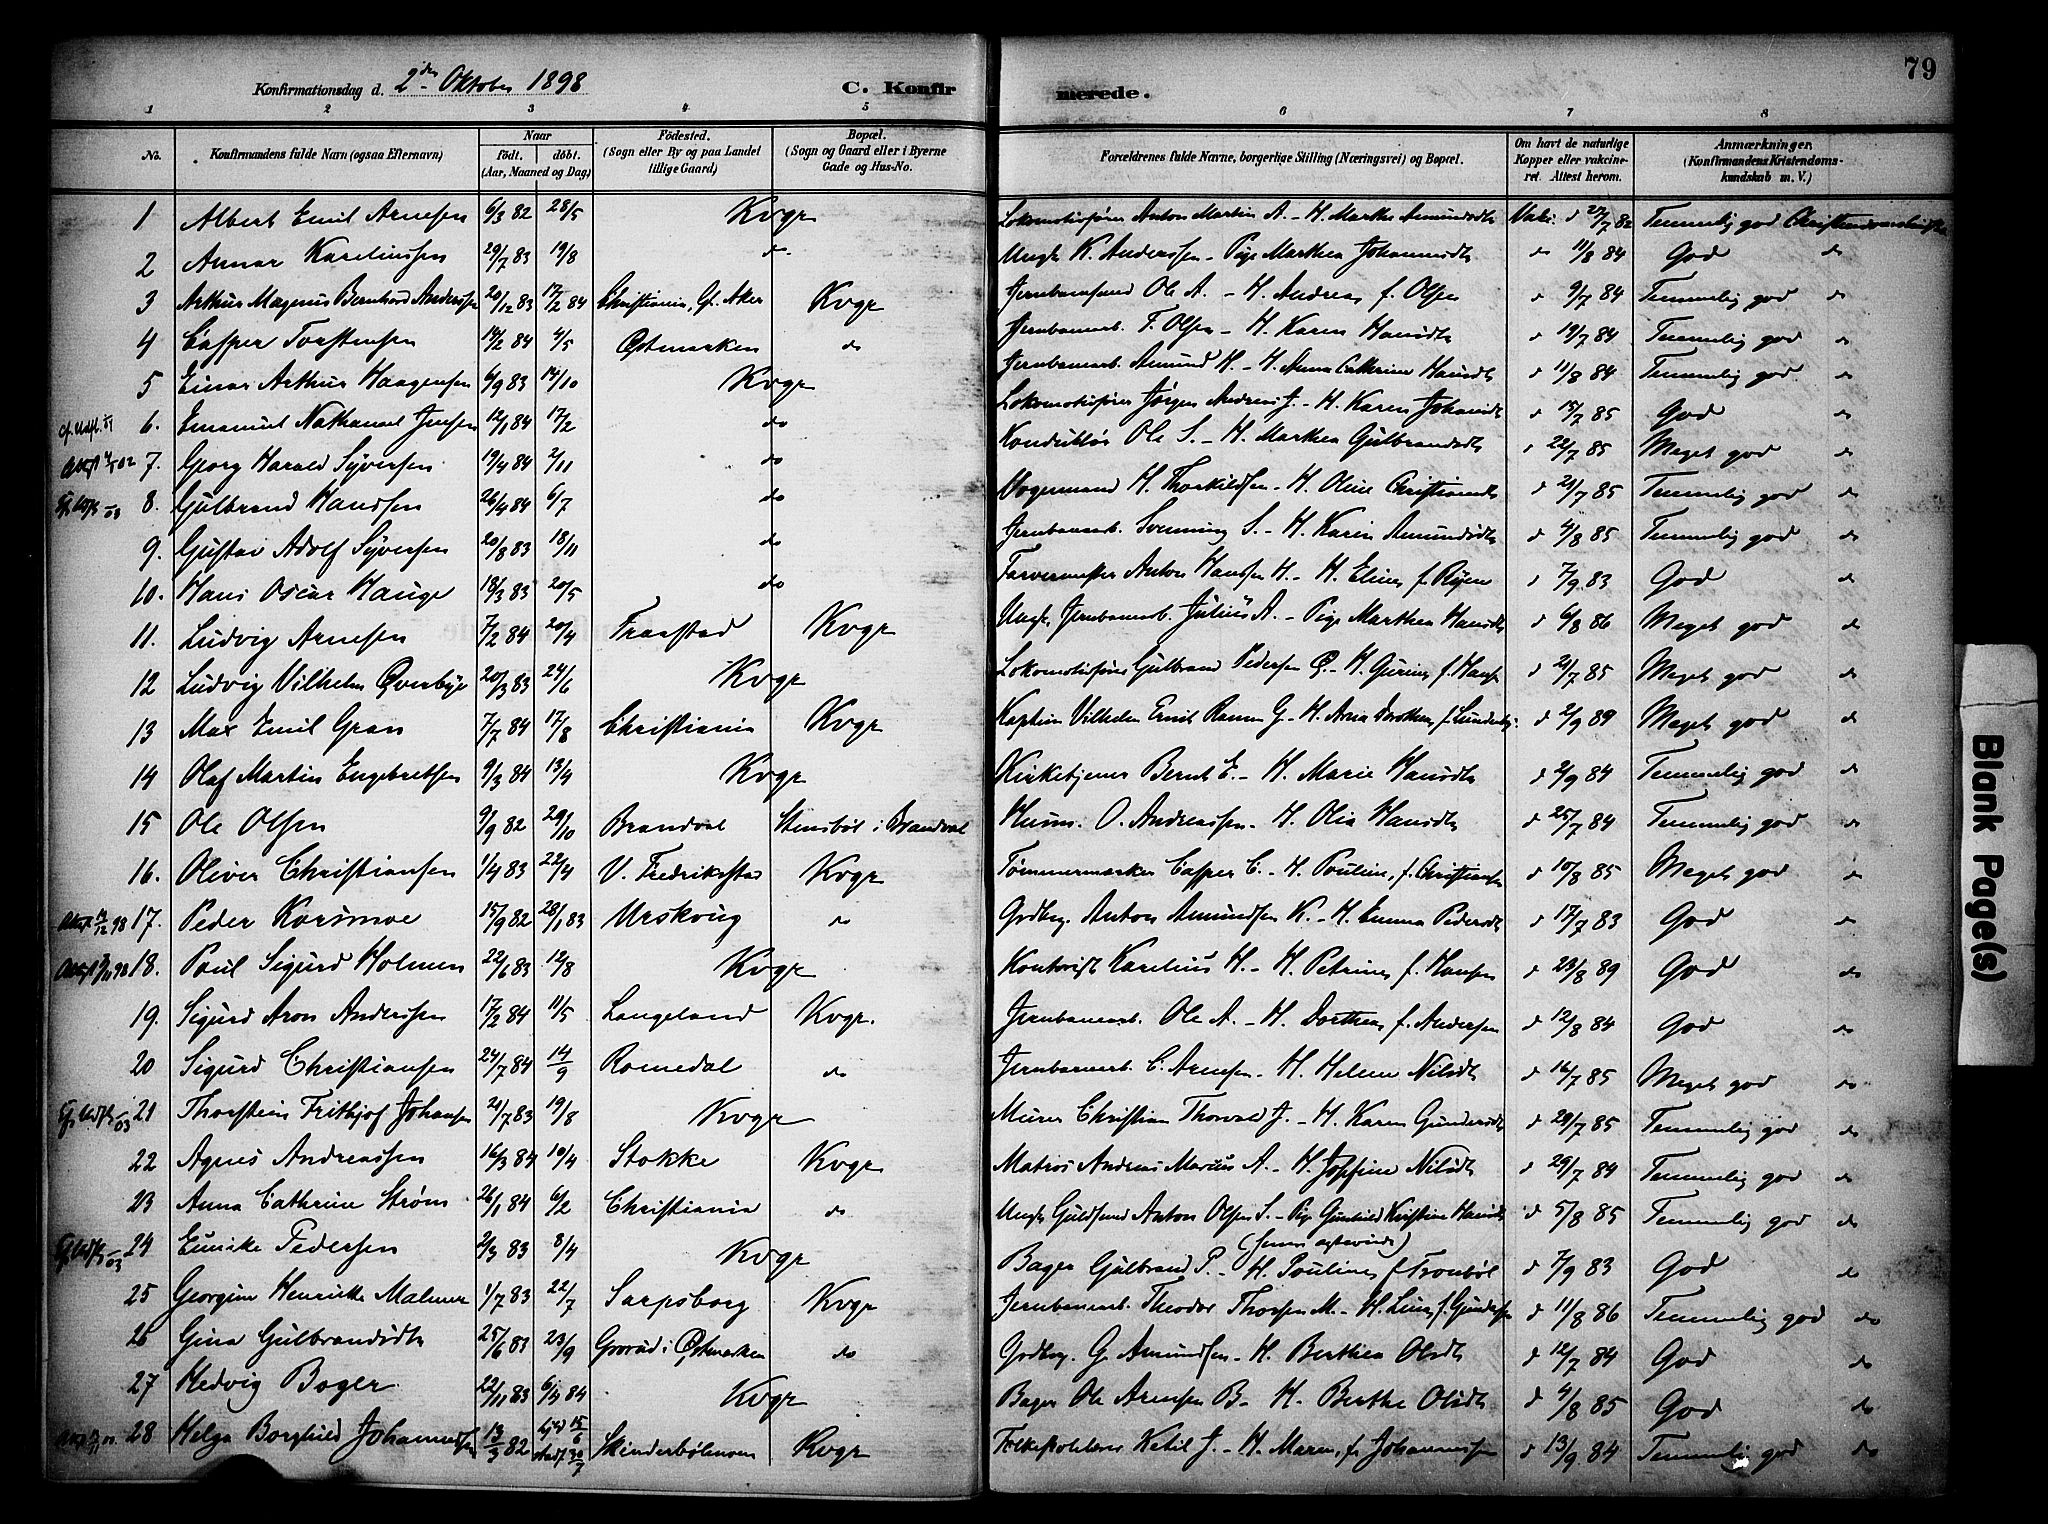 79
Konfirmationsdag d. 2den Oktober 1898 C. Konfirmerede.
1 2 3 4 5 6 7 8
No. Konfirmandens fulde Navn (ogsaa Efternavn) Naar født. døbt. (Aar, Maaned og Dag) Fødested. (Sogn eller By og paa Landet tillige Gaard) Bopæl. (Sogn og Gaard eller i Byerne Gade og Hus-No. Forældrenes fulde Navne, borgerlige Stilling (Næringsvei) og Bopæl. Om havt de naturlige Kopper eller vakcineret. Attest herom. Anmærkninger. (Konfirmandens Kristendomskundskab m. V.)
1 Albert Emil Arnesen 6/3 82 28/5 Kvgr Lokomotivfører Anton Martin A. - H. Marthe Amundsdt Vakc. d 27/7 82 Temmelig god Christendomskundsk
2 Annar Karelinssen 29/7 83 19/8 do Ungk. K. Anderssen - Pige Marthea Johannesdt do 11/8 84 God do
3 Arthur Magnus Bernhard Anderssen 20/12 83 17/2 84 Christiania, Gl. Aker Kvgr Jernbanemand Ole A. - H. Andrea f. Olsen d 9/7 84 Temmelig god do
4 Casper Torstensen 14/2 84 4/5 Østmarken do Jernbanearb. T. Olsen - H. Karen Hansdt d 19/7 84 Temmelig god do
5 Einar Arthur Haagensen 6/9 83 14/10 Kvgr Jernbanearb. Amund H. - H. Anna Cathrine Hansdt d 11/8 84 Temmelig god do
6. Emanuel Nathanael Jensen 12/1 84 17/2 do Lokomotivfører Jørgen Andreas J. - H. Karen Johansdt d 15/7 85 God do
7. Georg Harald Syversen 19/4 84 2/11 do Konduktør Ole S. - H. Marthea Gulbrandsdt d 22/7 85 Meget god do
8. Gulbrand Hanssen 26/4 84 6/7 do Vognmand H. Thorkildsen - H. Oline Christiansdt d 21/7 85 Temmelig god do
9. Gustav Adolf Syversen 20/8 83 18/11 do Jernbanearb. Svenning S. - H. Karen Amundsdt d 4/8 85 Temmelig god do
10. Hans Oscar Hauge 18/3 83 20/5 do Farvermester Anton Hanssen H. - H. Eline f. Ryen d 7/9 83 God do
11. Ludvig Arnesen 7/2 84 20/4 Traastad Kvgr Ungk. Jernbanearb. Julius A. - Pige Marthea Hansdt d 6/8 86 Meget god do
12 Ludvig Vilhelm Øverbye 20/3 83 24/6 Kvgr Lokomotivfører Gulbrand Pedersen Ø. - H. Gurine f. Hansen d 21/7 85 Meget god do
13 Max Emil Gran 7/7 84 17/8 Christiania Kvgr Kaptein Vilhelm Emil G. - H. Anna Dorothea f. Lundeby d 2/9 89 Meget god do
14 Olaf Martin Engebretsen 9/3 84 13/4 Kvgr Kirketjener Bernt E. - H. Marie Hansdt d 2/9 84 Temmelig god do
15 Ole Olsen 9/9 82 29/10 Brandval Stensbøl i Brandval Husm. O. Andreassen - H. Olia Hansdt d 25/7 84 Temmelig god do
16. Oliver Christiansen 1/4 83 22/4 V. Fredrikstad Kvgr Tømmermærker Casper C. - H. Pouline, f. Christiansen d 10/8 85 Meget god do
Attest 14/12 98 17. Peder Korsmoe 15/9 82 28/1 83 Urskoug do Godbg. Anton Amundsen K. - H. Emma Pedersdt d 17/7 83 God do
18. Paul Sigurd Holmen 22/6 83 12/8 Kvgr Kontorist Karelius H. - H. Petrine f. Hansen d 23/8 89 God do
19. Sigurd Aron Anderssen 17/2 84 11/5 Langeland Kvgr. Jernbanearb. Ole A. - H. Dorthea f. Andersen d 12/8 84 God do
20 Sigurd Christiansen 24/7 84 14/9 Romedal do Jernbanearb. C. Arnesen - H. Helene Nilsdt d 16/7 85 Meget god do
21 Thorstein Frithjof Johansen 21/7 83 19/8 Kvgr Murer Christian Thorvald J. - H. Karen Gundersdt d 28/7 85 Temmelig god do
22 Agnes Andreassen 16/3 84 10/4 Stokke Kvgr Matros Andreas Marius A. - H. Josefine Nilsdt d 29/7 84 Temmelig god do
23 Anna Cathrine Strøm 26/1 84 6/2 Christiania do Ungk. Guldsmed Anton Olsen S. - Pige Gunhild Kristine Hansdt d 5/8 85 Temmelig god do
24 Eunike Pedersen 2/3 83 8/4 Kvgr Bager Gulbrand P. - H. Pouline f. Tronbøl d 7/9 83 God do
25 Georgine Henriette Malmer 1/7 83 22/7 Sarpsborg Kvgr Jernbanearb. Theodor Thorsen M. - H. Lina f. Gundersen d 11/8 86 Temmelig god do
26 Gina Gulbrandsdt 25/6 83 23/9 Grorud i Østmarken do Godbg. G. Amundsen - H. Berthea Olsdt d 12/7 84 God do
27 Hedvig Boger 22/11 83 6/4 84 Kvgr Bager Ole Arnesen B. - H. Berthe Olsdt d 4/8 85 God do
28 Helga Borghild Johannessen 13/3 82 15/6 stadf. 30/7 Skinderbølmoen Kvgr Folkeskolelærer Ketil J. - H. Maren, f. Johannessen d 13/9 84 Temmelig god do
Blank Page(s)